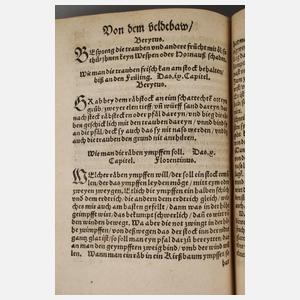 Von dem veldtbaw/
Berytus.
BEspreng die trauben und andere frücht mit öl/ so
thůt jhnen keyn Wespen oder Hornauß schaden.
Wie man die trauben frisch kan am stock behalten/
biß an den Früling. Das .ix. Capitel.
Berytus.
GRab bey dem räbstock an ein schattechte ort eyn
grůb/ zweyer elen tieff/ vñ
nach desden räbstock oder pfäl dareyn/ und bieg die
ben geschicklich mit den trauben dareyn/ und bind
an die pfäl/ deck sy auch das sy nit naß werden/ und
auch die trauben den grund nit anrühren.
Wie man die räben ympffen soll. Das .x.
Capitel. Florentinus.
WElcher räben ympffen will/ der soll ein stock
len/ der das ympffen leyden möge/ mitt eym oder
zweyen zweygen/ Etlich die ympffen ein halben schůch
und dem erdtrich/ die andern dem erdtrich gleich/
ches mir auch am basten gefellt/ dann was in der höhe
geimpfft wirt/ das bekumpt schwerlich/ dañ es wirt
den winden bewegt. Wa aber die not zwingt in der
he zuimpffen/ von deswegen das der stock inn der
gantz glat ist/ so soll man eyn pfal darzů bereyten/
man den geympfften zweig bind/ vmb der wind
len. Wann man ein räb in ein Kirßbaum ympffen